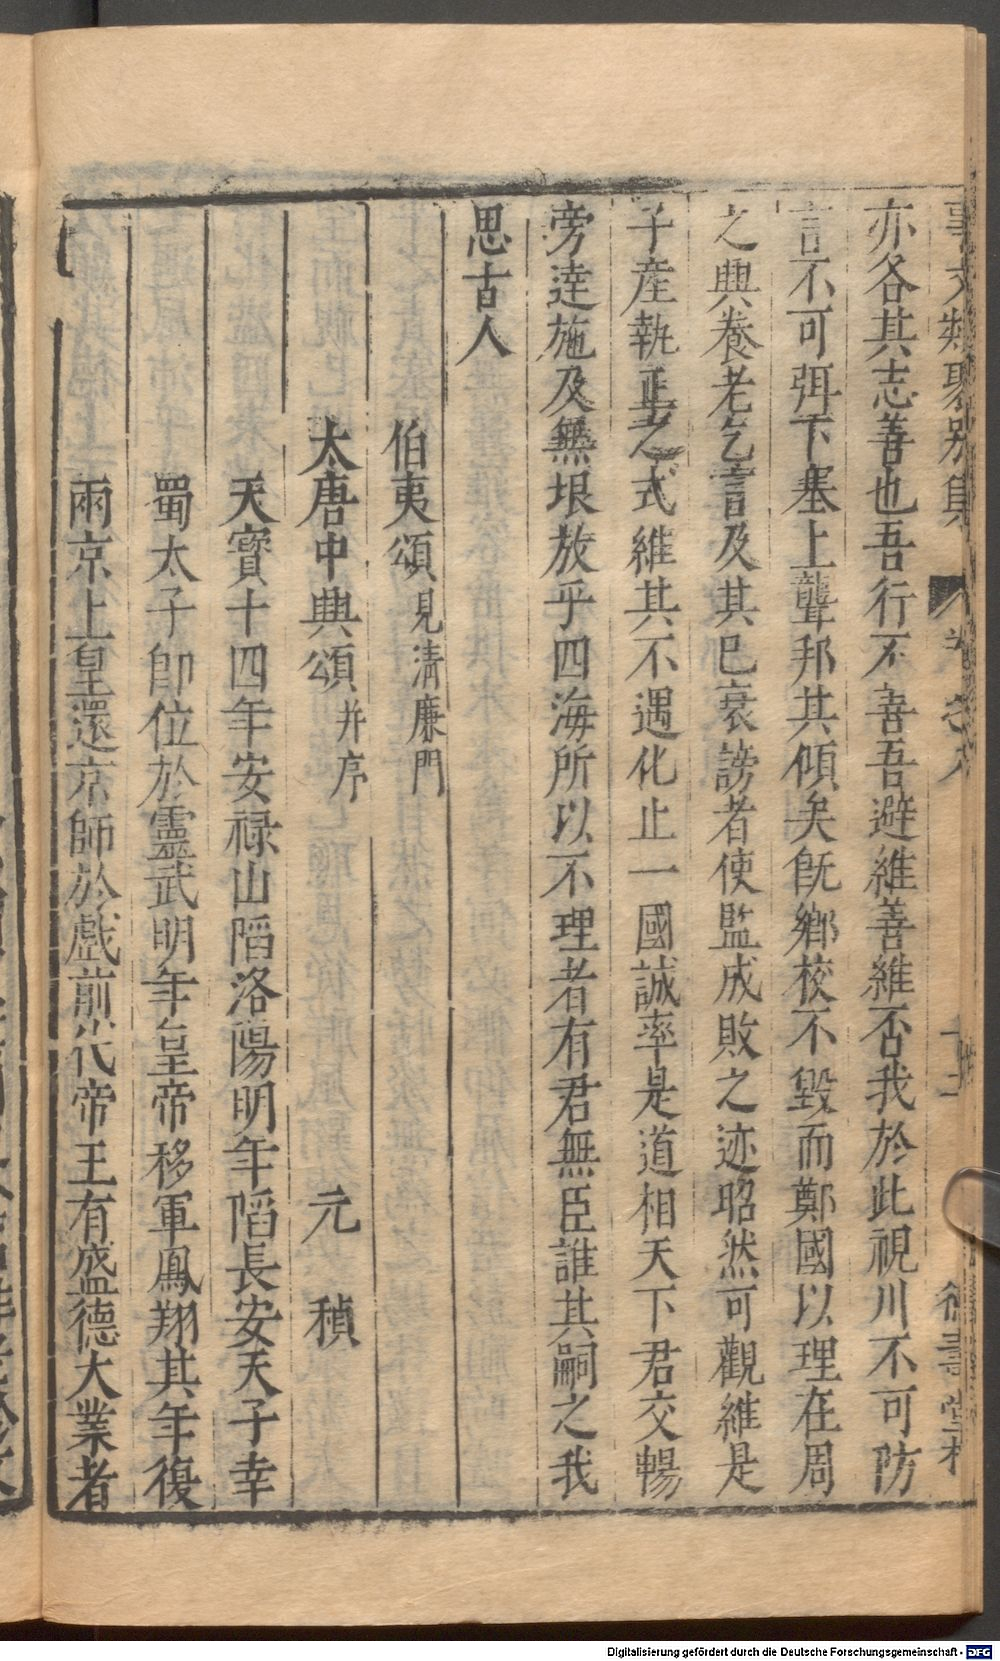 事文類聚別集 卷之八 十二 德壽堂梓
亦各其志善也吾行不善吾避維善維否我於此視川不可防
言不可弭下塞上聾邦其傾矣旣鄉校不毀而鄭國以理在周
之興養老乞言及其已衰謗者使監成敗之迹昭然可觀維是
子產執正之式維其不遇化止一國誠率是道相天下君交暢
旁達施及無垠放乎四海所以不理者有君無臣誰其嗣之我
思古人
伯夷頌見淸廉門
太唐中興頌并序 元 稹
天寶十四年安祿山陷洛陽明年陷長安天子幸
蜀太子卽位於靈武明年皇帝移軍鳳翔其年復
兩京上皇還京師於戲前代帝王有盛德大業者
Digitalisierung gefördert durch die Deutsche Forschungsgemeinschaft - DFG